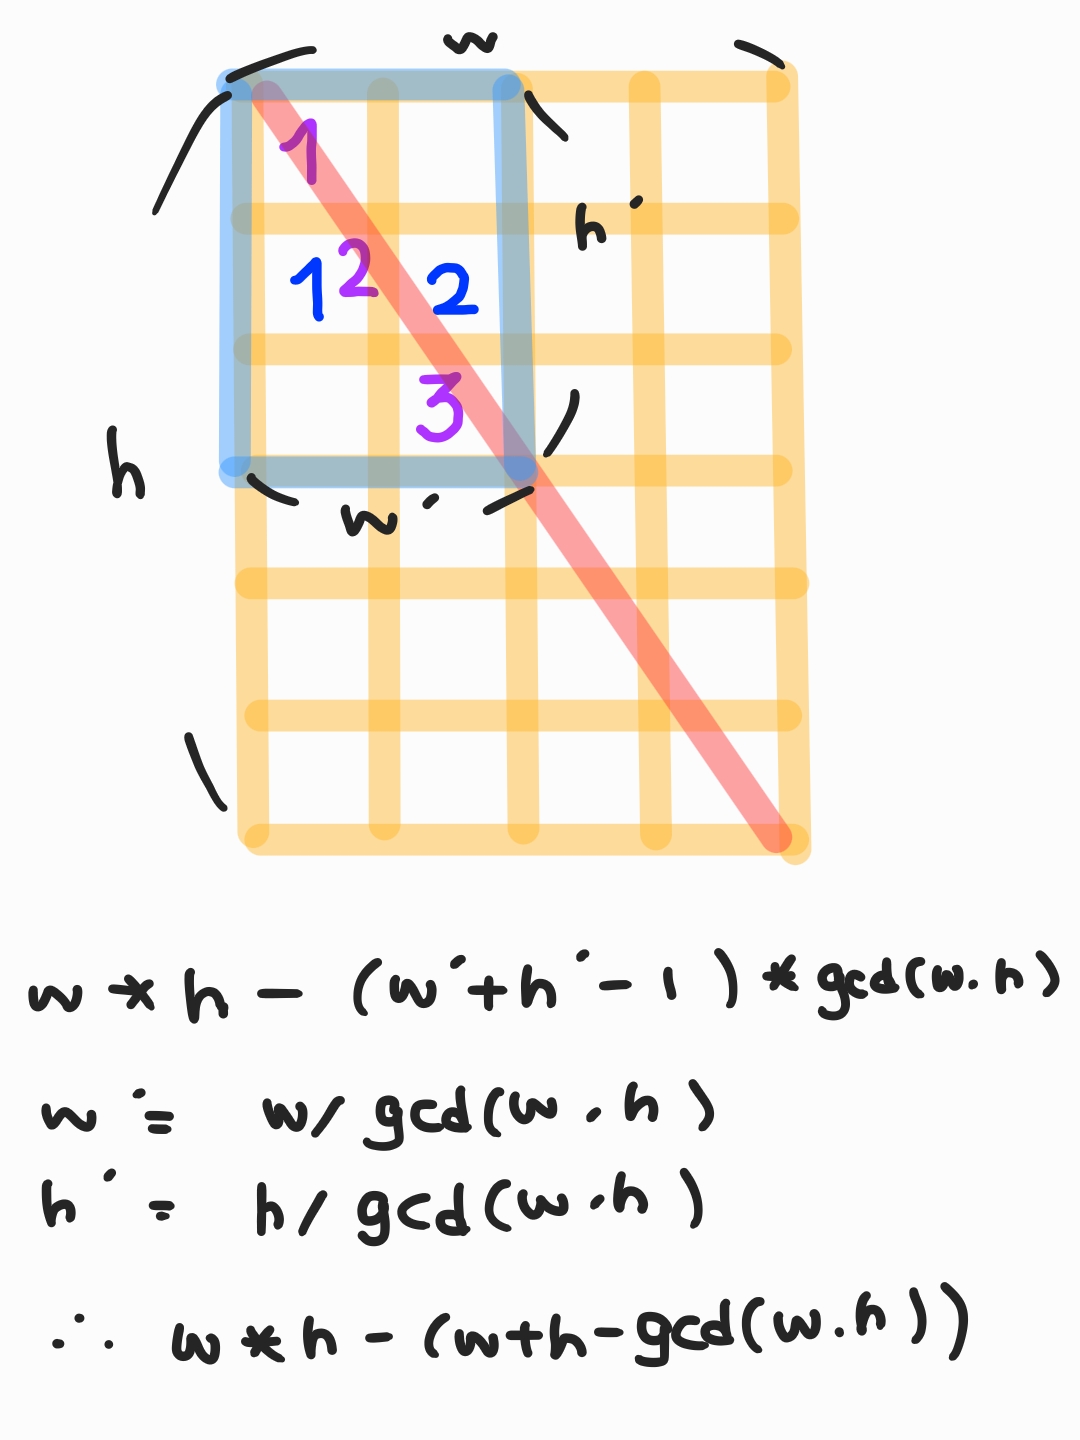 w
1
h'
1 2 2
3
h
w'
w * h - (w' + h' - 1) * gcd(w.h)
w' = w/gcd(w.h)
h' = h/gcd(w.h)
∴ w * h - (w+h-gcd(w.h))